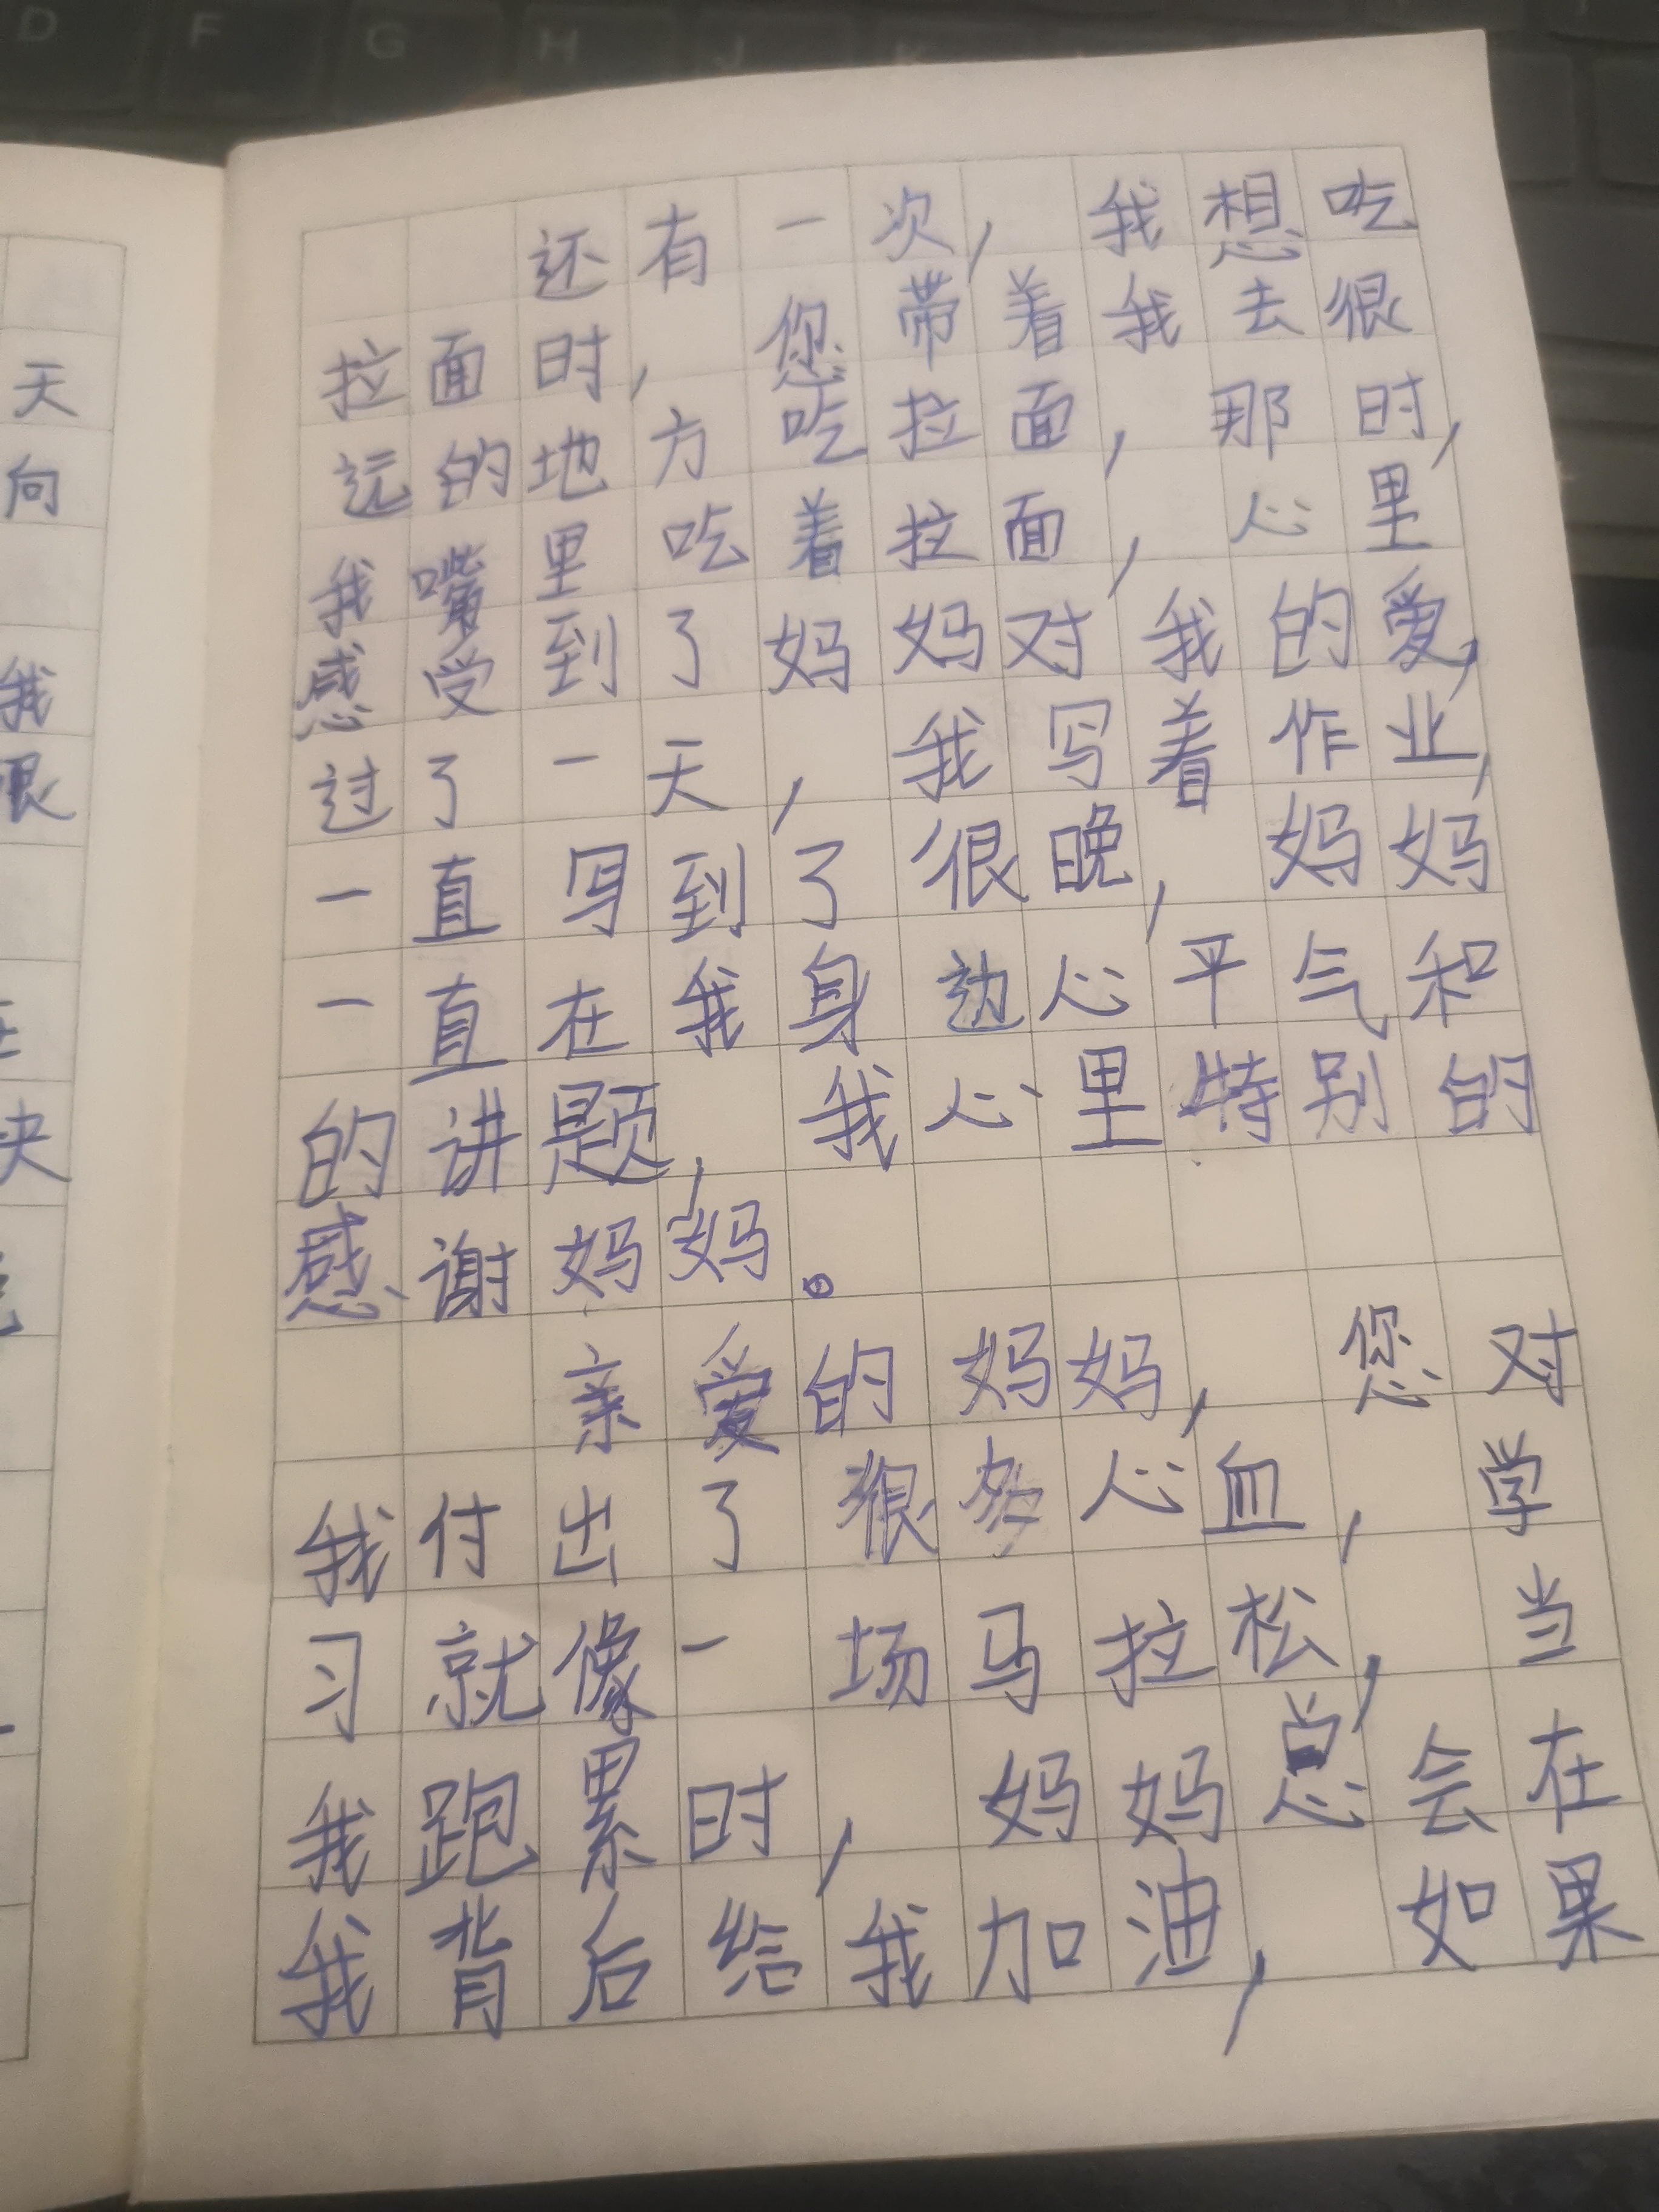 天
向
我
很
央
还有一次，我想吃
拉面时，您带着我去很
远的地方吃拉面，那时，
我嘴里吃着拉面，心里
感受到了妈妈对我的爱，
过了一天，我写着作业，
一直写到了很晚，妈妈
一直在我身边心平气和
的讲题，我心里特别的
感谢妈妈。
亲爱的妈妈，您对
我付出了很多心血，学
习就像一场马拉松，当
我跑累时，妈妈总会在
我背后给我加油，如果
D F G H J K